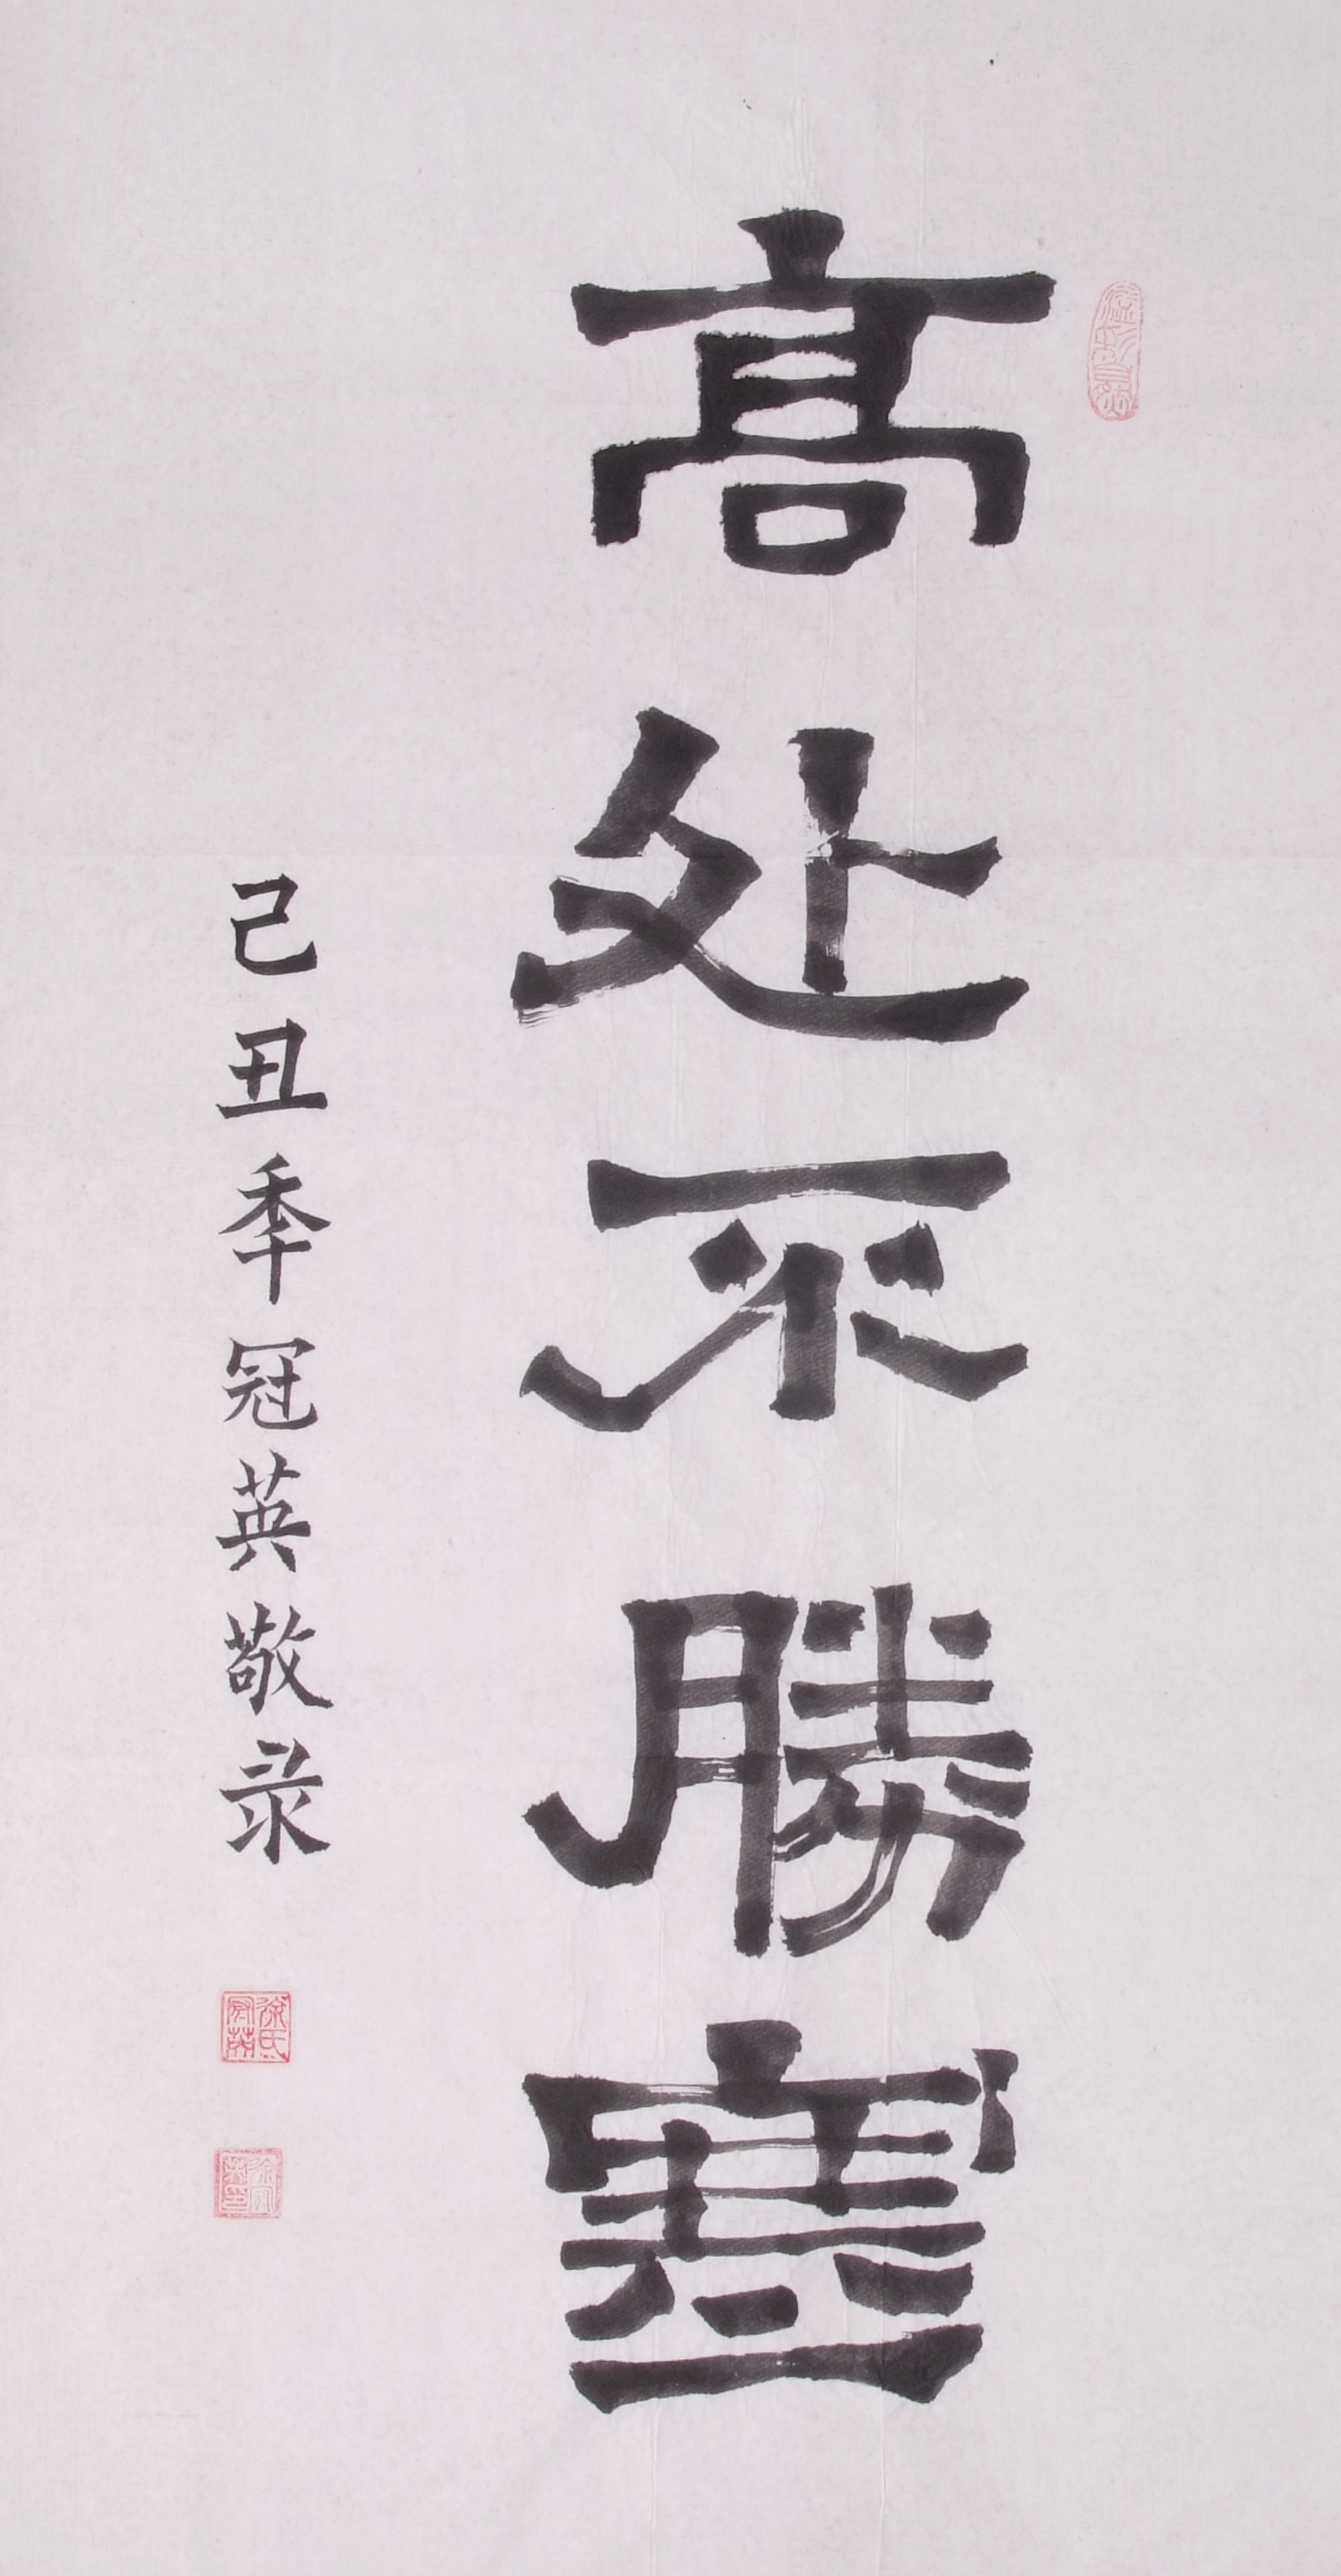 髙处不勝寒
己丑季冠英敬录